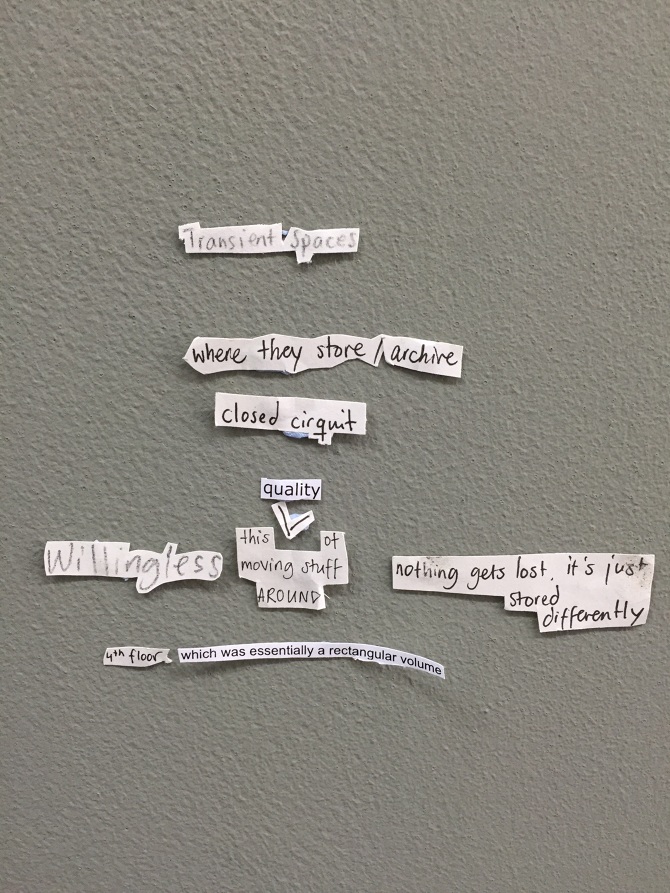 Transient Spaces
where they store / archive
closed cirquit
quality
Willingless
this of
moving stuff
AROUND
nothing gets lost, it's just
stored
differently
4th floor
which was essentially a rectangular volume